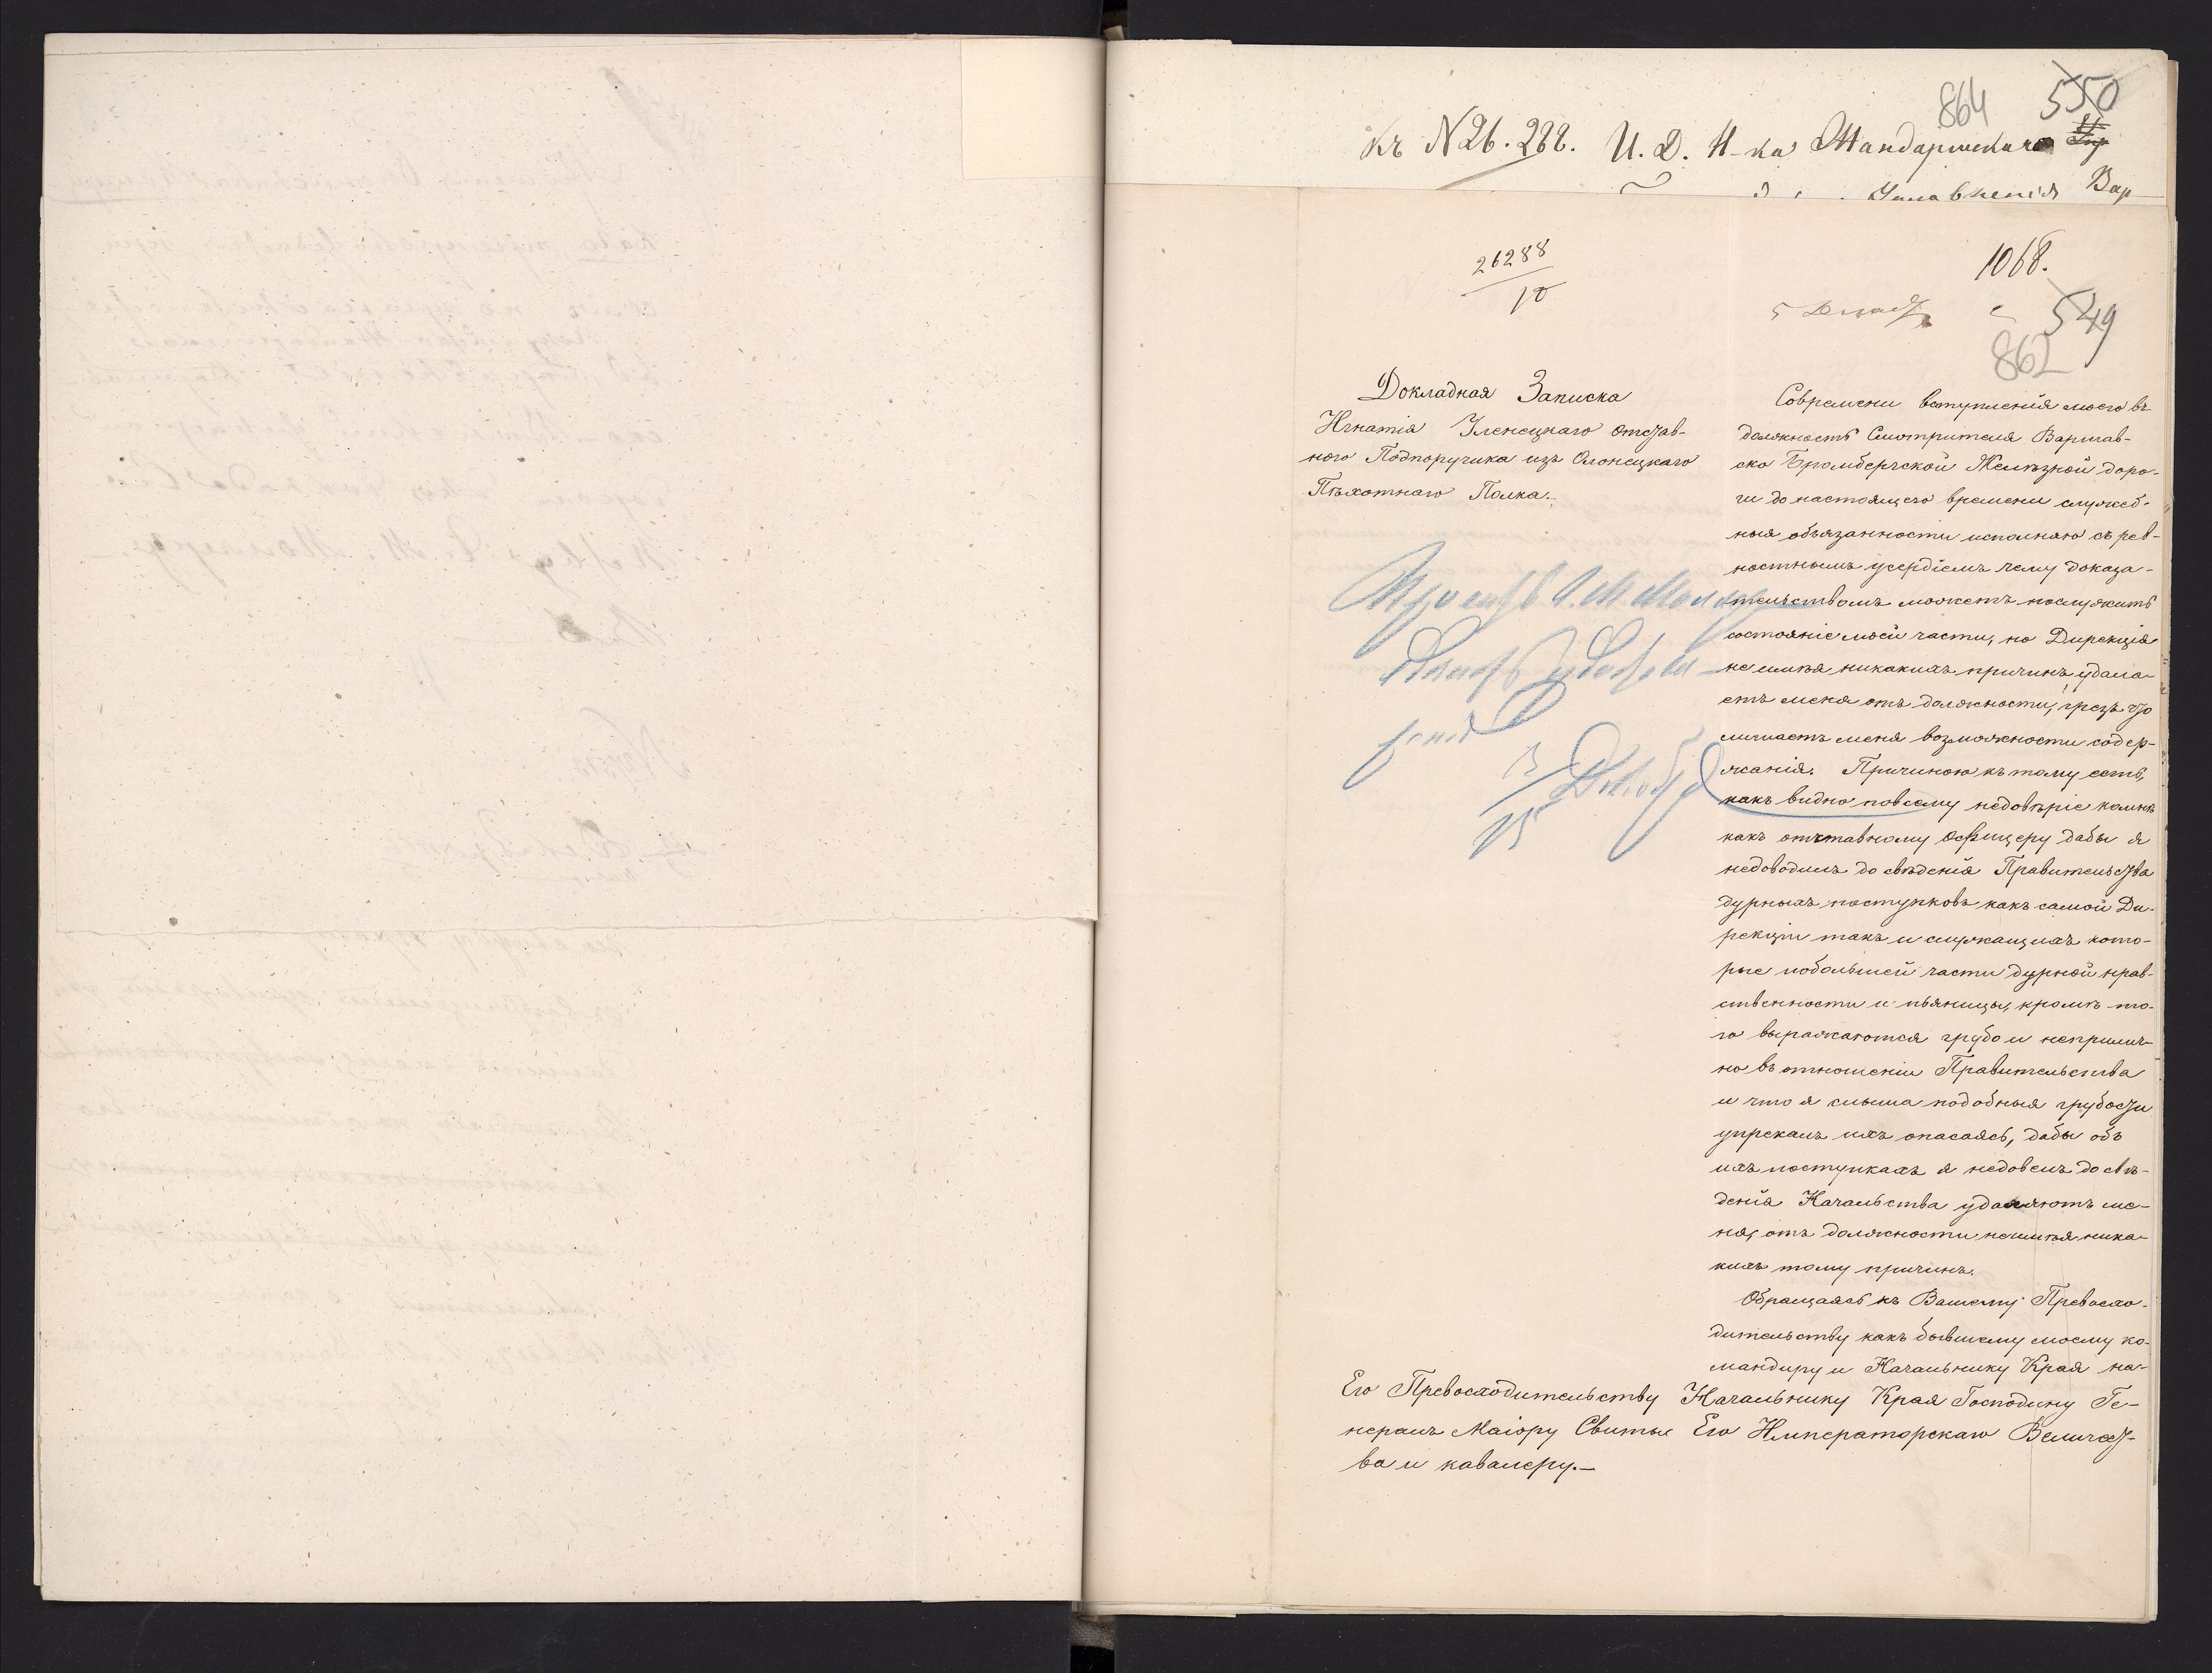 864 550
Къ N 26.288. И. Д. Н-ка Жандармскаго
Управленія Вар
26288
10
1068.
5 Декаб
549
862
Докладная Записка
Игнатія Иленецкаго отстав-
ного Подпоручика изъ Олонецкаго
Пѣхотнаго Полка.
Современи вступленія моего въ
должность Смотрителя Варшав-
ско Бромбергской Желѣзной доро-
ги до настоящего времени служеб-
ныя объязанности исполняю съ рев-
ностнымъ усердіемъ чему доказа-
тельствомъ можетъ послужить
состояніе моей части, но Дирекція
не имѣя никакихъ причинъ удаля-
етъ меня отъ должности, чрезъ что
лишаетъ меня возможности содер-
жанія. Причиною къ тому есть,
какъ видно повсему недовѣріе комнѣ
какъ отставному Офицеру дабы я
недоводилъ до свѣденія Правительства
дурныхъ поступковъ какъ самой Ди-
рекціи такъ и служащихъ кото-
рые побольшей части дурной нрав-
ственности и пьяницы, кромѣ то-
го выражаются грубо и неприлич-
но въ отношеніи Правительства
и что я слыша подобныя грубости
упрекалъ ихъ опасаясь, дабы объ
ихъ поступкахъ я недовелъ до свѣ-
денія Начальства удаляютъ ме-
ня, отъ должности неимѣя ника-
кихъ тому причинъ.
Обращаясь къ Вашему Превосхо-
дительству какъ бывшему моему ко-
мандиру и Начальнику Края на-
Его Превосходительству Начальнику Края Господину Ге-
нералъ Маіору Свиты Его Императорскаго Величест-
ва и кавалеру.—